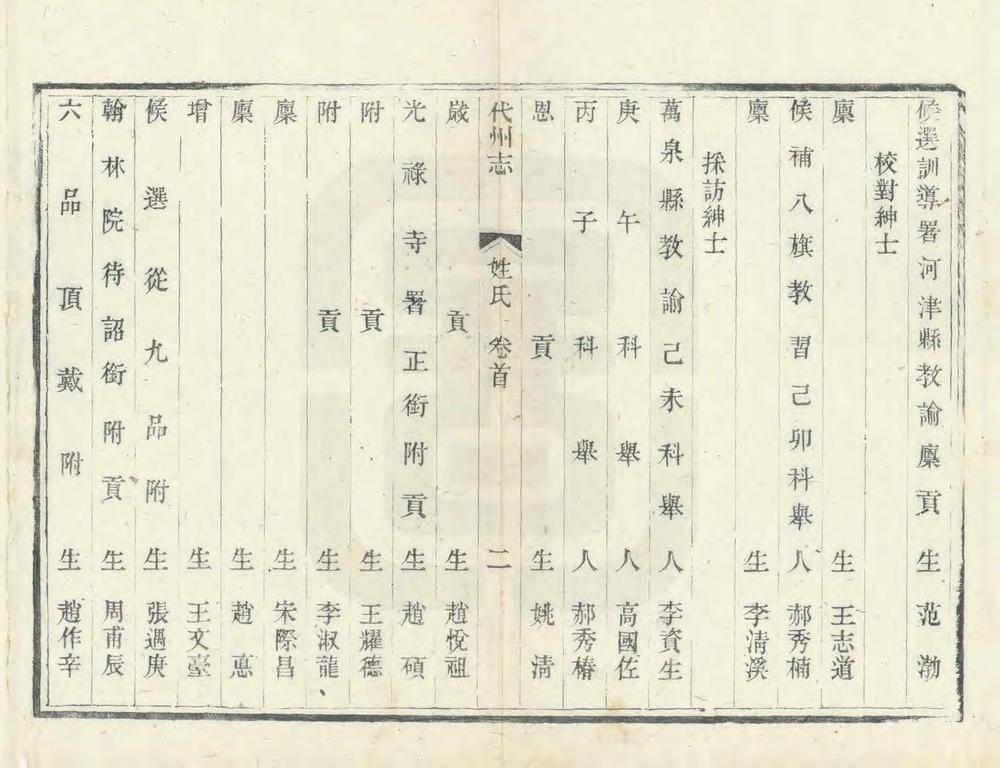 候選訓導署河津縣教諭廩貢生范渤
校對紳士
廩生王志道
候補八旗教習己卯科舉人郝秀楠
廩生李清溪
採訪紳士
萬泉縣教諭己未科舉人李資生
庚午科舉人高國佐
丙子科舉人郝秀椿
恩貢生姚清
代州志 姓氏 卷首 二
歲貢生趙悅祖
光祿寺署正銜附貢生趙碩
附貢生王耀德
附貢生李淑龍
廩生宋際昌
廩生趙悳
增生王文臺
候選從九品附生張遇庚
翰林院待詔銜附貢生周甫辰
六品頂戴附生趙作辛